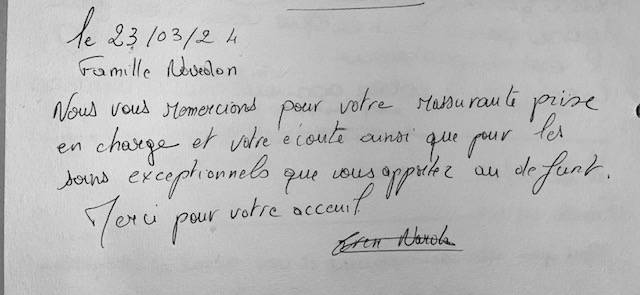 le 23/03/24
Famille
Nous vous remercions pour votre rassurante prise
en charge et votre écoute ainsi que pour les
soins exceptionnels que vous apportez au defunt.
Merci pour votre acceuil